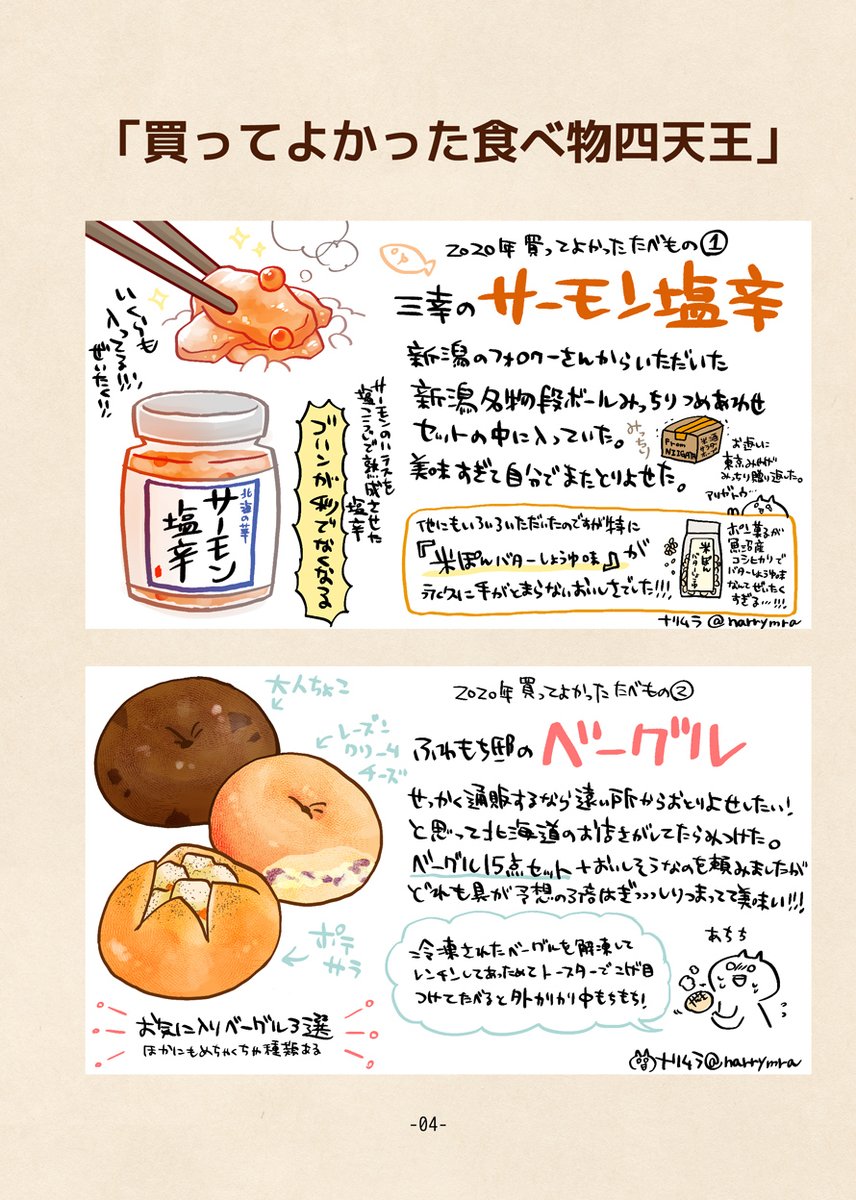 「買ってよかった食べ物四天王」
2020年買ってよかったたべもの①
三幸のサーモン塩辛
新潟のフォロワーさんからいただいた
新潟名物の段ボールみっちりつめあわせ
セットの中に入っていた。
美味すぎて自分でまたとりよせた。
みっちり
From
NIIGATA
お返しに
東京みやげ
みっちり贈り返した。
アリガトウ…
いくらも
入ってる!!!
ぜいたく!!
サーモンのハラスを
糀こうじで熟成させた
塩辛
ゴハンが秒でなくなる
北海の華
サーモン
塩辛
他にもいろいろいただいたのですが特に
『米ぽんバターしょうゆ味』が
永久に手がとまらないおいしさでした!!!
米ぽん
バターしょうゆ
ポン菓子が
魚沼産
コシヒカリで
バターしょうゆ味
なんてぜいたく
すぎる…!!!
ナリムラ@narrymra
2020年買ってよかったたべもの②
ふわもち邸のベーグル
せっかく通販するなら遠い所からおとりよせしたい!
と思って北海道のお店さがしてたらみつけた。
ベーグル15点セット+おいしそうなのを頼みましたが
どれも具が予想の3倍はぎっっっしりつまってて美味い!!!
大人ちょこ
レーズン
クリーム
チーズ
ポテ
サラ
お気に入りベーグル3選
ほかにもめちゃくちゃ種類ある
冷凍されたベーグルを解凍して
レンチンしてあっためてトースターでこげ目
つけてたべると外かりかり中もちもち!
あちち
ナリムラ@narrymra
-04-